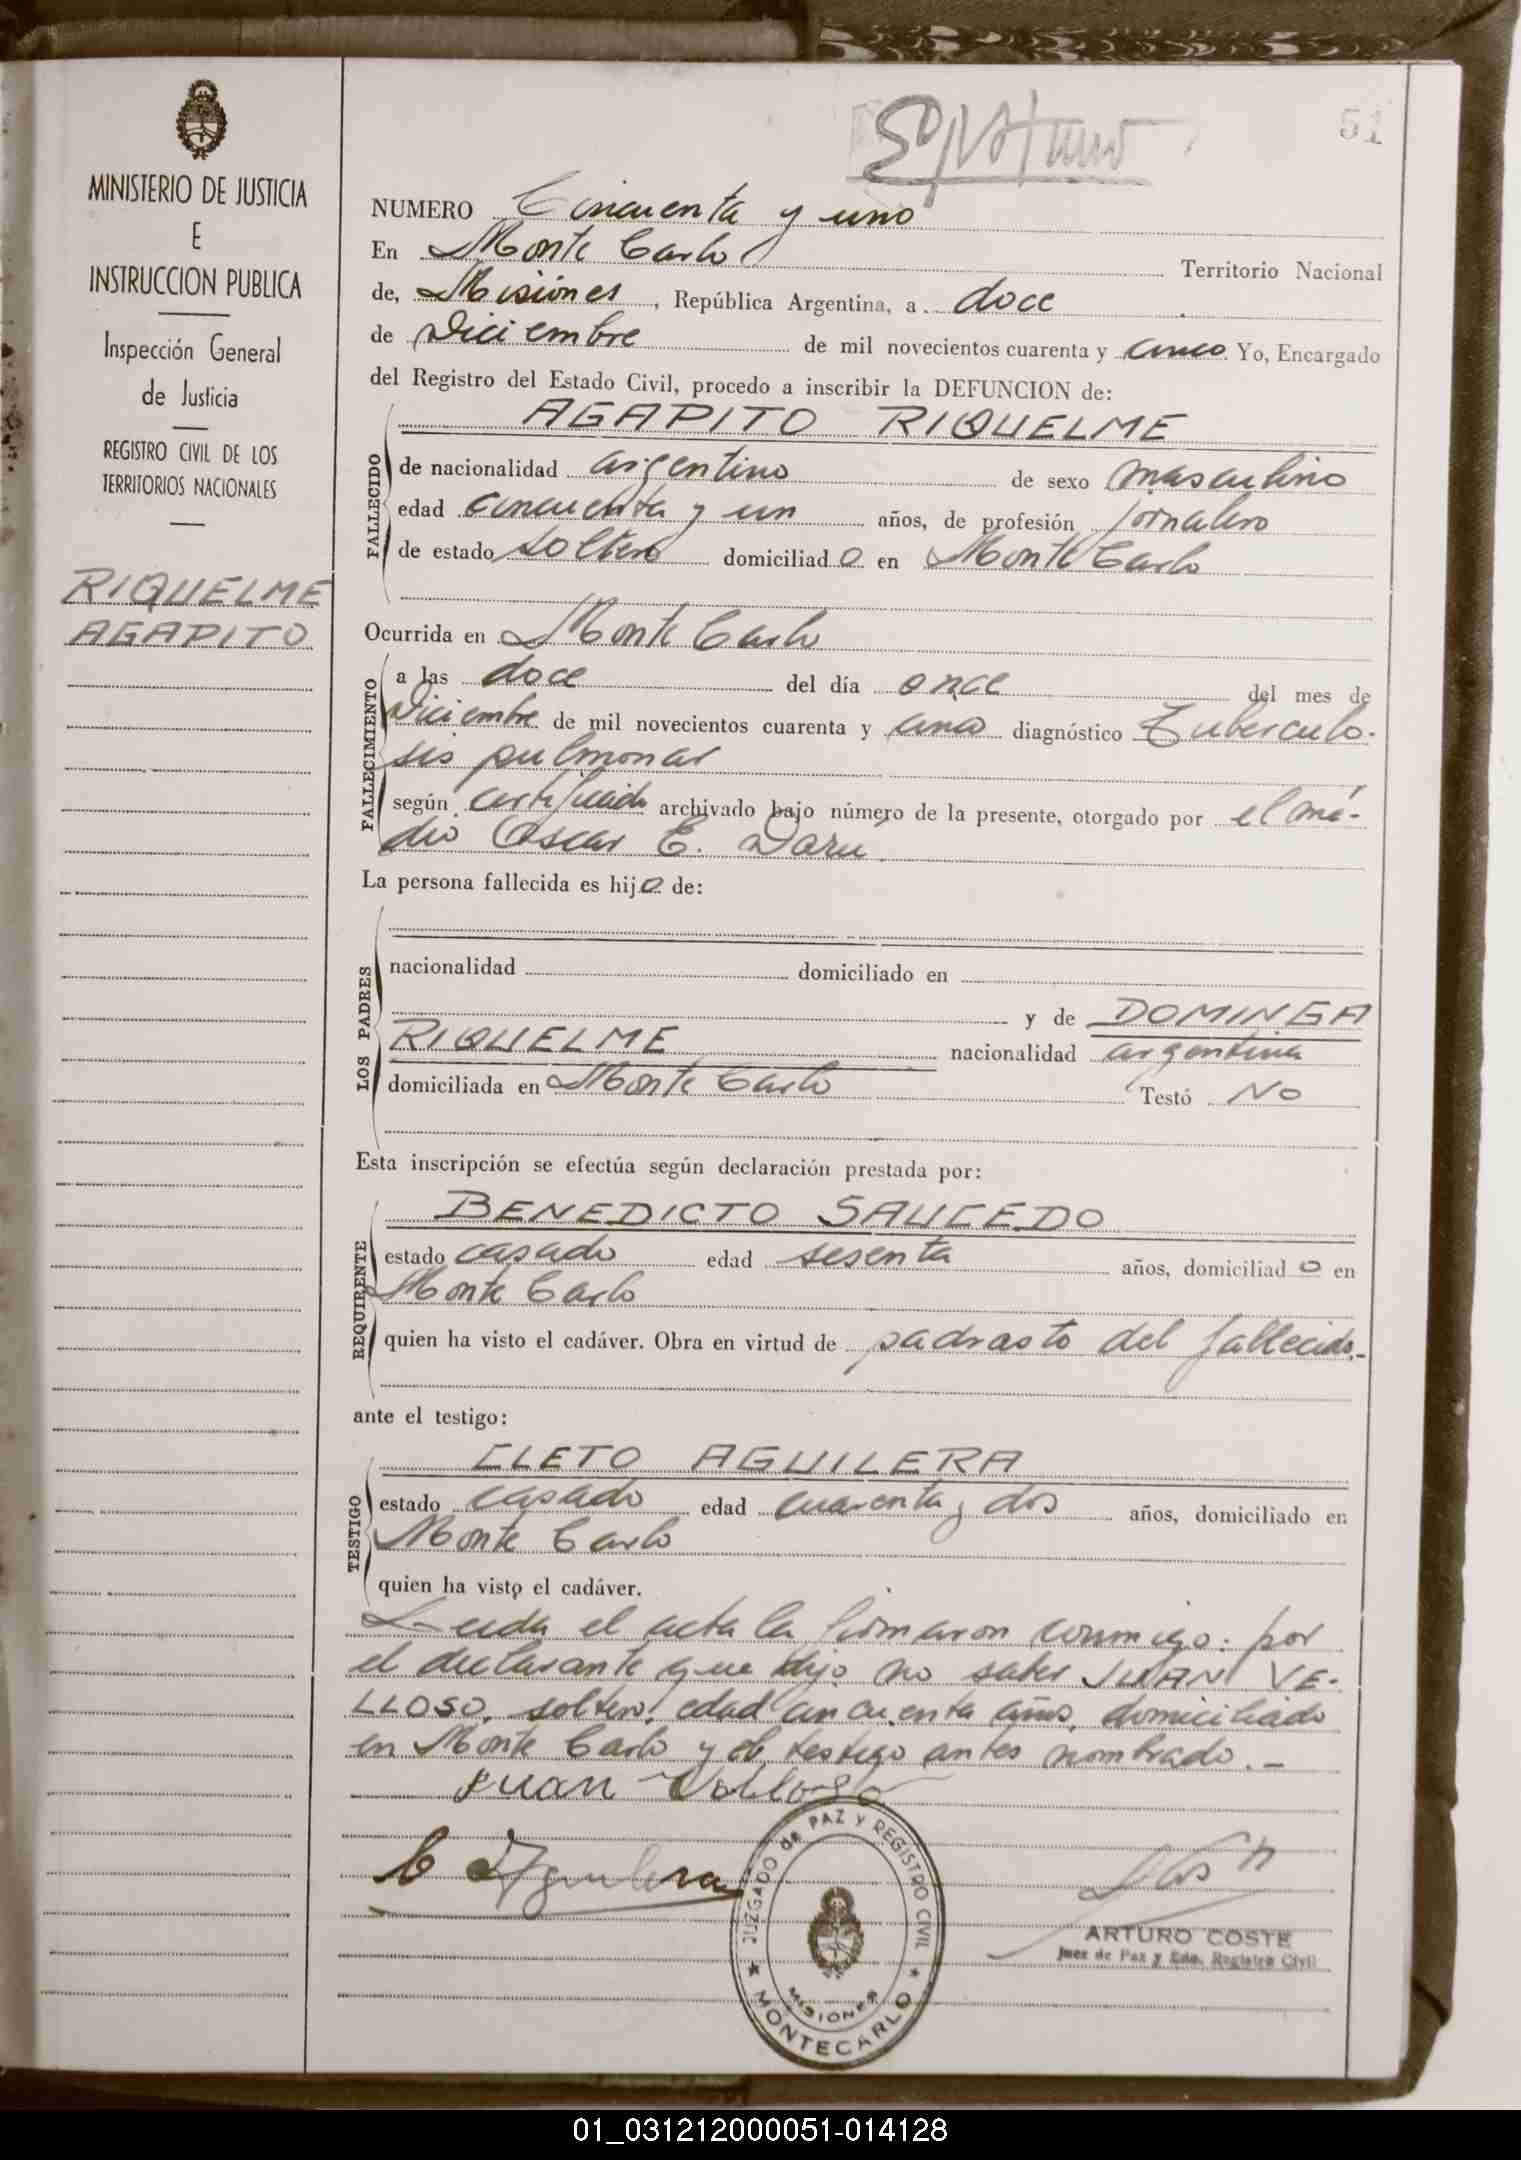 51
MINISTERIO DE JUSTICIA
E
INSTRUCCION PUBLICA
Inspección General
de Justicia
REGISTRO CIVIL DE LOS
TERRITORIOS NACIONALES
RIQUELME
AGAPITO
NUMERO Cincuenta y uno
En Monte Carlo Territorio Nacional
de, Misiones, República Argentina, a doce
de Diciembre de mil novecientos cuarenta y cinco Yo, Encargado
del Registro del Estado Civil, procedo a inscribir la DEFUNCION de:
AGAPITO RIQUELME
FALLECIDO
de nacionalidad argentino de sexo masculino
edad cincuenta y un años, de profesión jornalero
de estado soltero domiciliado en Monte Carlo
Ocurrida en Monte Carlo
FALLECIMIENTO
a las doce del día once del mes de
Diciembre de mil novecientos cuarenta y cinco diagnóstico Tuberculo-
sis pulmonar
según certificado archivado bajo número de la presente, otorgado por el mé-
dico Oscar E. Darú.
La persona fallecida es hijo de:
LOS PADRES
nacionalidad domiciliado en
y de DOMINGA
RIQUELME nacionalidad argentina
domiciliada en Monte Carlo Testó No
Esta inscripción se efectúa según declaración prestada por:
BENEDICTO SAUCEDO
REQUIRENTE
estado casado edad sesenta años, domiciliado en
Monte Carlo
quien ha visto el cadáver. Obra en virtud de padrasto del fallecido.-
ante el testigo:
CLETO AGUILERA
TESTIGO
estado casado edad cuarenta y dos años, domiciliado en
Monte Carlo
quien ha visto el cadáver.
Leida el acta la firmaron conmigo: por
el declarante que dijo no saber JUAN VE-
LLOSO, soltero, edad cincuenta años, domiciliado
en Monte Carlo y el testigo antes nombrado.-
Juan Velloso
C Aguilera
JUZGADO de PAZ Y REGISTRO CIVIL
MISIONES
MONTECARLO
ARTURO COSTE
Juez de Paz y Edo. Registro Civil
01_031212000051-014128